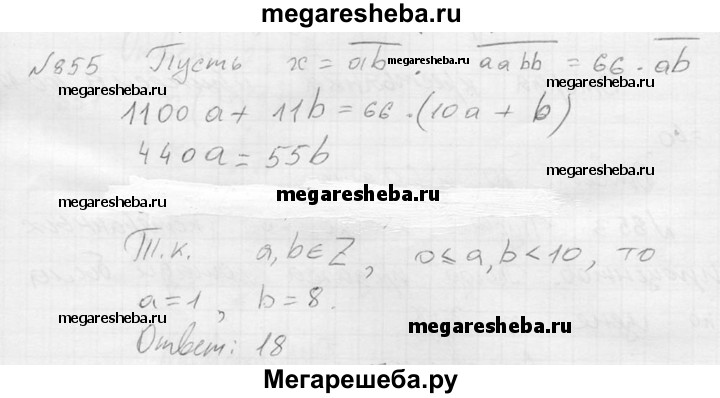 megaresheba.ru
№855 Пусть x = ab. aabb = 66 · ab
megaresheba.ru megaresheba.ru
1100a + 11b = 66 · (10a + b)
440a = 55b
megaresheba.ru megaresheba.ru
megaresheba.ru
Т.к. a, b ∈ Z, 0 ≤ a, b < 10, то
a = 1, b = 8.
megaresheba.ru megaresheba.ru
Ответ: 18
Мегарешеба.ру